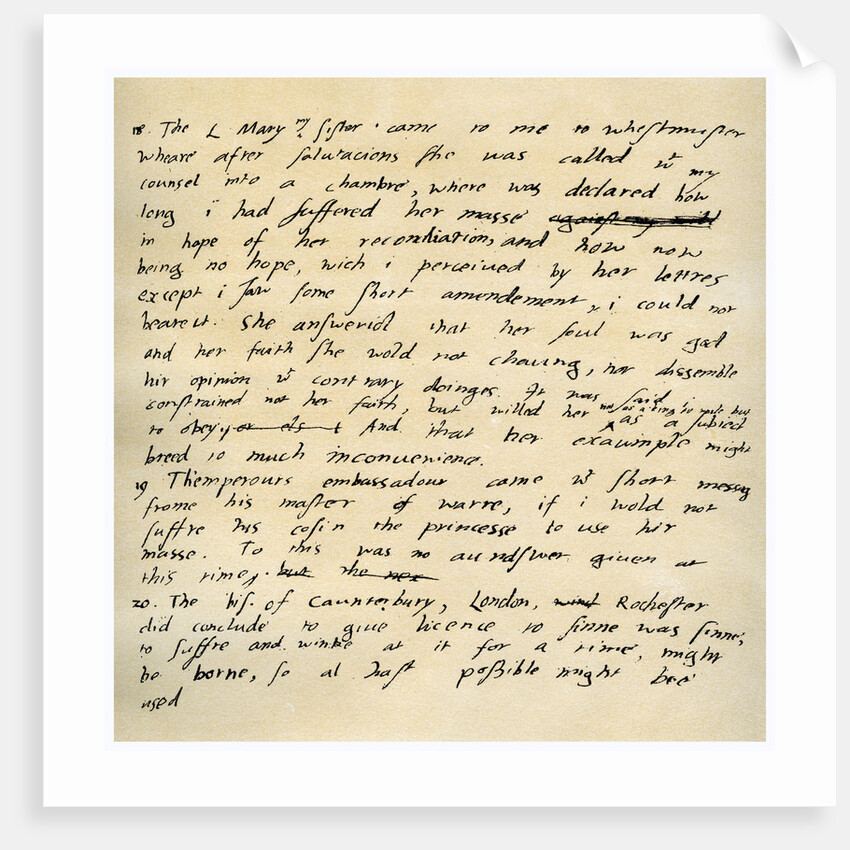 18. The L Mary my sister came to me to whestmuster
wheare after salutacions she was called wt my
counsel into a chambre, where was declared how
long i had suffered her masse against my will
in hope of her reconciliation, and how now
being no hope, wich i perceiued by her lettres
except i saw some short amendement, i could not
beare it. She answerid that her soul was god
and her faith she wold not chaung, nor dissemble
hir opinion wt contrary doinges. It was said i
constrained not her faith, but willed her not as a king to rule but
to obey, or els t as a subiect And that her exaumple might
breed to much inconuenience.
19 Themperours embassadour came wt short messag
frome his master of warre, if i wold not
suffre his cosin the princesse to use hir
masse. To this was no aundswer giuen at
this time, but the nex
20. The bis. of Caunterbury, London, Rochester
did conclude to giue licence to sinne was sinne,
to suffre and winke at it for a time, might
be borne, so al hast poßible might bee
used